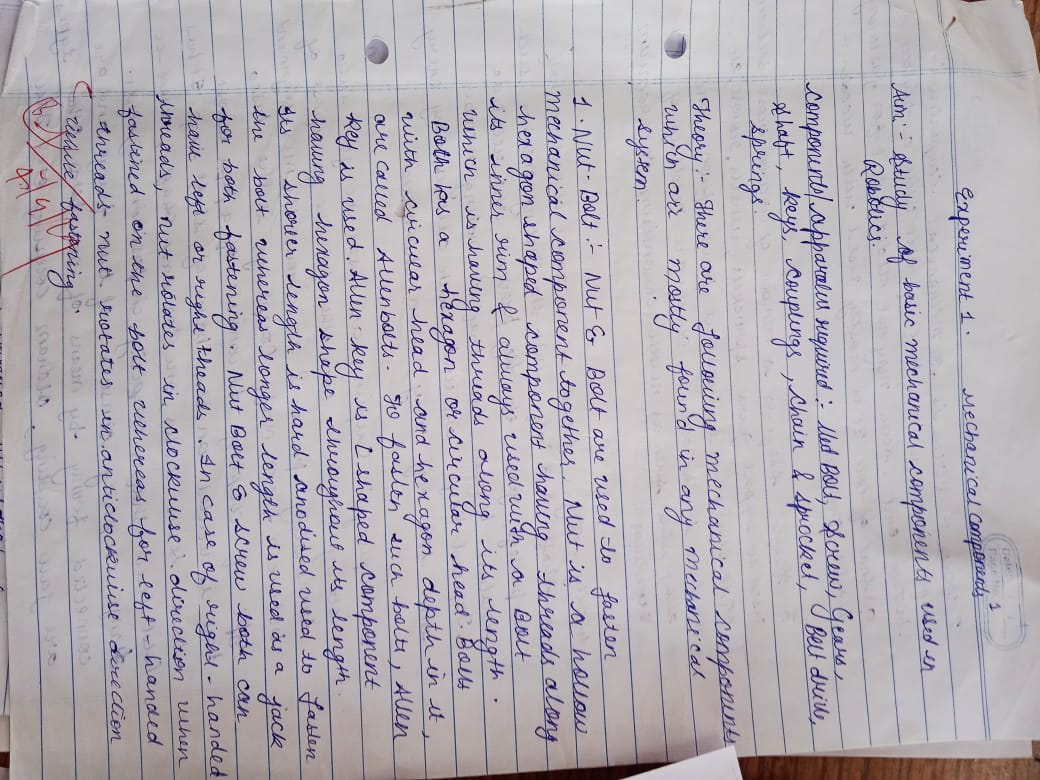 Experiment 1. Mechanical components
Aim :- Study of basic mechanical components used in
Robotics.
Components/apparatus required :- Nut Bolt, Screw, Gears,
Shaft, keys, couplings, chain & sprocket, Belt drive,
springs.
Theory :- There are following mechanical components
which are mostly found in any mechanical
system.
1. Nut-Bolt :- Nut & Bolt are used to fasten
mechanical component together. Nut is a hollow
hexagon shaped component having threads along
its inner rim & always used with a Bolt
which is having threads along its length.
Bolt has a hexagon or circular head. Bolts
with circular head and hexagon depth in it,
are called Allen bolts. To fasten such bolts, Allen
key is used. Allen key is L shaped component
having hexagon shape throughout its length.
Its shorter length is hard and used to fasten
the bolt whereas longer length is used as a jack
for bolt fastening. Nut Bolt & screw both can
have left or right theads. In case of right-handed
threads, nut rotates in clockwise direction when
fastened on the bolt whereas for left-handed
threads nut rotates in anticlockwise direction
while fastening.